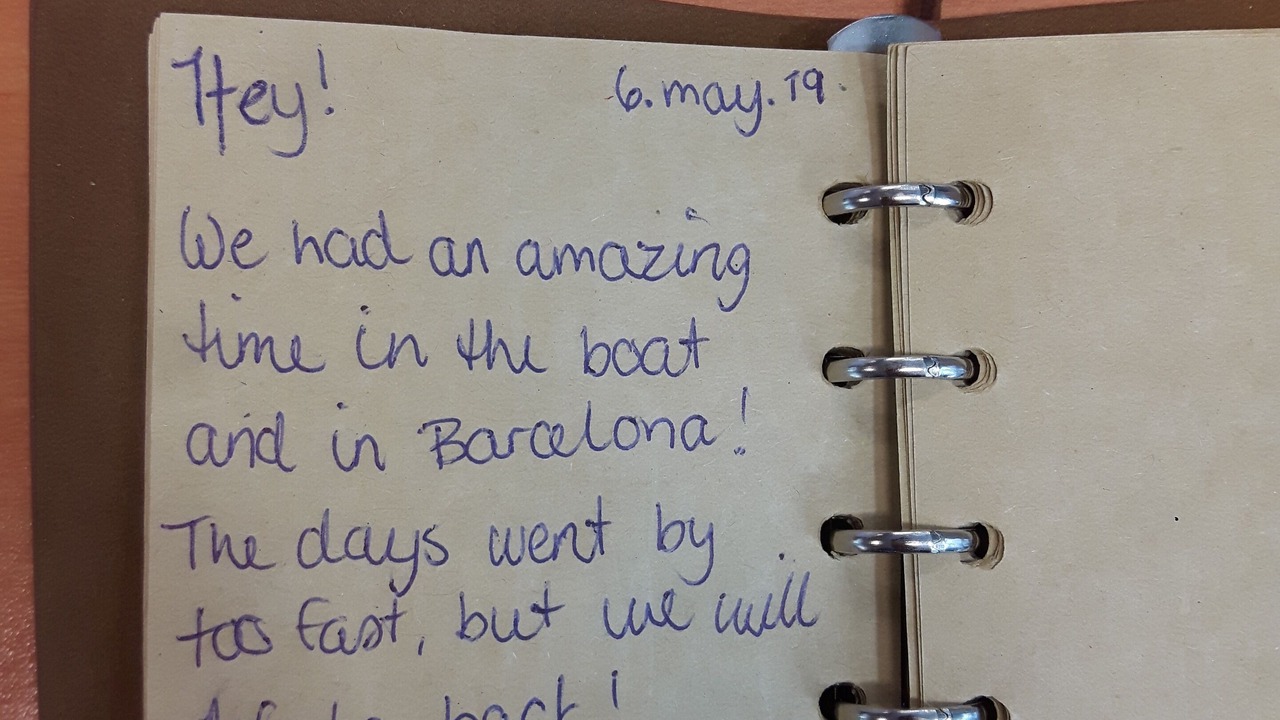 Hey! 6. may. 19.
We had an amazing
time in the boat
and in Barcelona!
The days went by
too fast, but we will